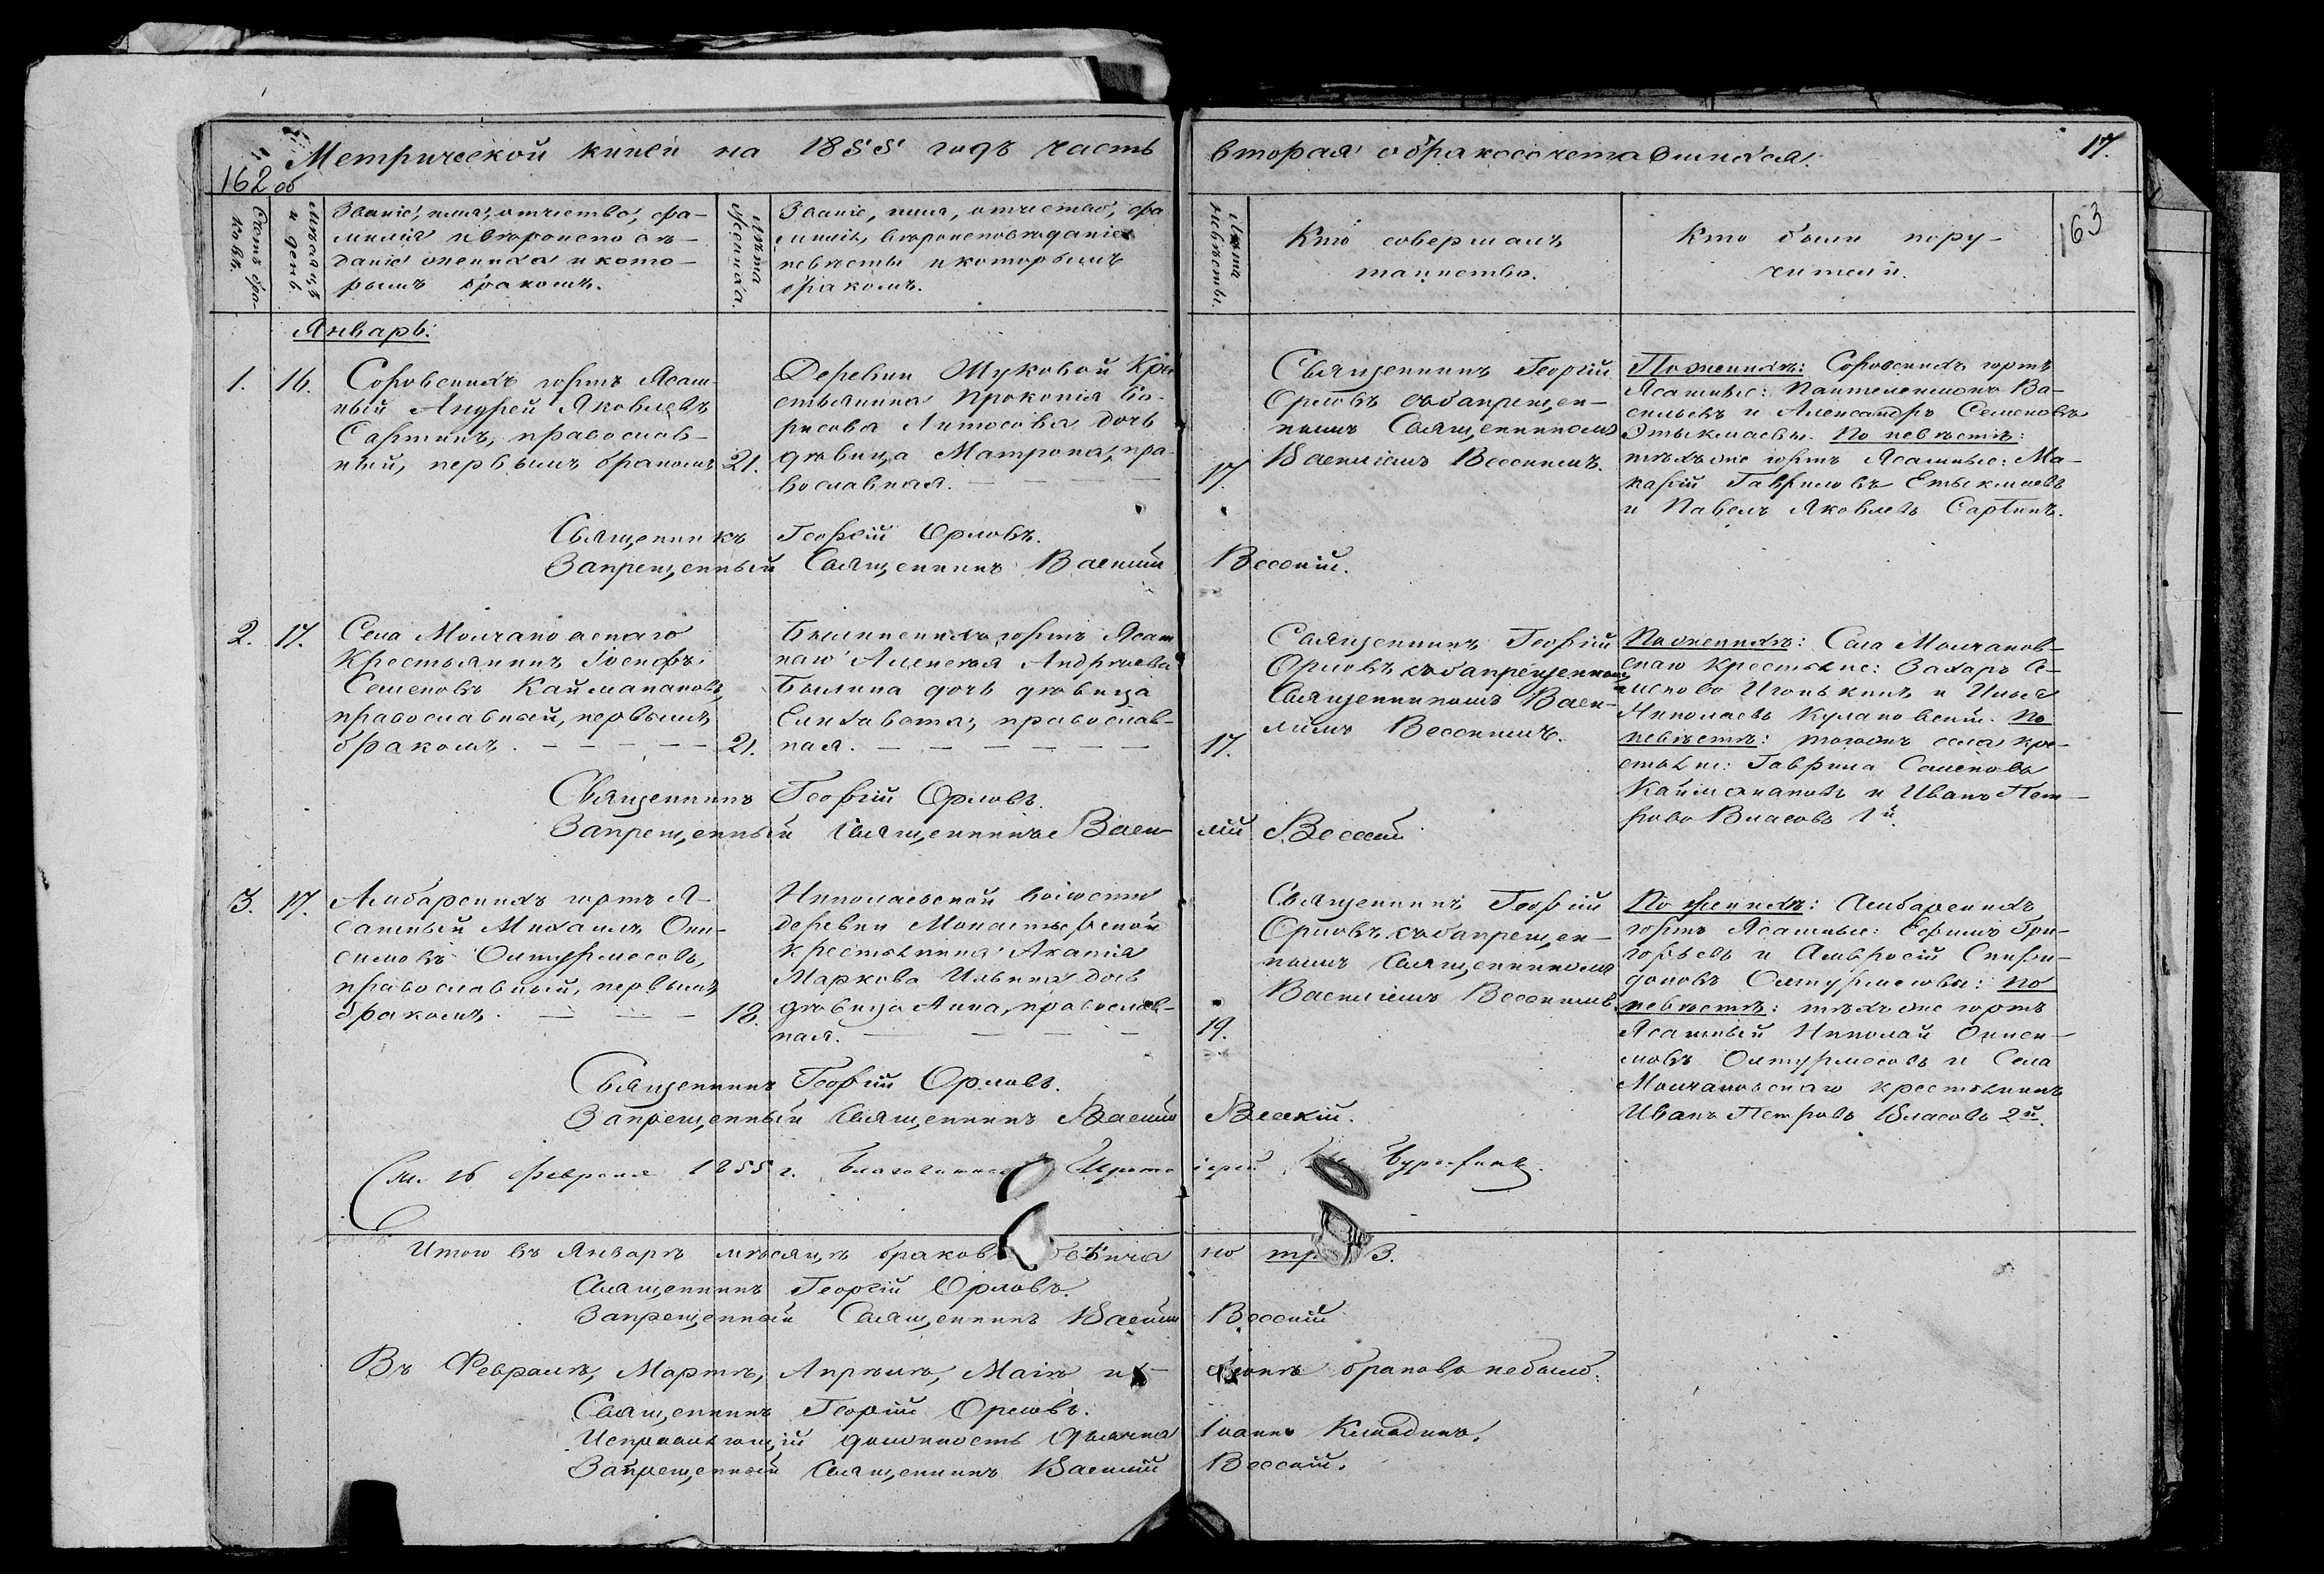 Метрической книги на 1855 годъ часть вторая о бракосочетавшихся.
17.
162 об
163
Счетъ браковъ.
Мѣсяцъ и день
Званіе, имя, отчество, фа-
милія и вѣроисповѣ-
даніе жениха и кото-
рымъ бракомъ.
Лѣта жениха.
Званіе, имя, отчество, фа
милія, вѣроисповѣданіе
невѣсты и которымъ
бракомъ.
Лѣта невѣсты.
Кто совершалъ
таинство.
Кто были пору-
чители.
Январь:
1.
16.
Соровскихъ юртъ Ясаш-
ный Андрей Яковлевъ
Сартинъ, православ-
ный, первымъ бракомъ
21.
Деревни Жуковой Кре
стьянина Прокопія Бо-
рисова дочь
дѣвица Матрона, пра-
вославная.
17.
Священникъ Георгій
Орловъ съ запрещен-
нымъ Священникомъ
Василіемъ
По женихѣ: Соровскихъ юртъ
Ясашные: Пантелеимонъ Ва-
сильевъ и Александръ Семеновъ
Этыкмаевы. По невѣстѣ:
тѣхъ же юртъ Ясашные: Ма-
карій Гавриловъ Етыкмаевъ
и Павелъ Яковлевъ Сартинъ.
Священникъ Георгій Орловъ.
Запрещенный Священникъ Василій
2.
17.
Села Молчановскаго
Крестьянинъ Іосифъ
Семеновъ Каймананов
православный, первымъ
бракомъ.
21.
юртъ Ясаш
наго Алексѣя Андреева
Былина дочь дѣвица
Елизавета, православ-
ная.
17.
Священникъ Георгій
Орловъ съ запрещеннымъ
Священникомъ Васи-
ліемъ
По женихѣ: Села Молчанов-
скаго крестьяне: Захаръ Се-
меновъ Игонькинъ и Илья
Николаевъ Кулаковскій. По
невѣстѣ: тогожъ села кре-
стьяне: Гаврила Семеновъ
Каймананов и Иванъ Пет-
ровъ Власовъ 1й.
Священникъ Георгій Орловъ.
Запрещенный Священникъ Василій
3.
17.
Амбарскихъ юртъ Я-
сашный Михаилъ Они-
симовъ Олтурмесовъ,
православный, первымъ
бракомъ.
18.
Николаевской волости
деревни Монастырской
крестьянина Акакія
Маркова Ильина дочь
дѣвица Анна, православ-
ная.
19.
Священникъ Георгій
Орловъ съ запрещен-
нымъ Священникомъ
Василіемъ
По женихѣ: Амбарскихъ
юртъ Ясашные: Ефимъ Гри-
горьевъ и Амвросій Спири-
доновъ Олтурмесовы: По
невѣстѣ: тѣхъ же юртъ
Ясашный Николай Ониси-
мовъ Олтурмесовъ и Села
Молчановскаго крестьянинъ
Иванъ Петровъ Власовъ 2й.
Священникъ Георгій Орловъ.
Запрещенный Священникъ Василій
См. 16 февраля 1855 г. Благочинный
Итого въ Январѣ мѣсяцѣ браковъ 3.
Священникъ Георгій Орловъ.
Запрещенный Священникъ Василій
Въ Февралѣ, Мартѣ, Апрѣлѣ, Маіѣ и Іюнѣ браковъ небыло.
Священникъ Георгій Орловъ.
Исправляющій должность дьячка Іоаннъ
Запрещенный Священникъ Василій